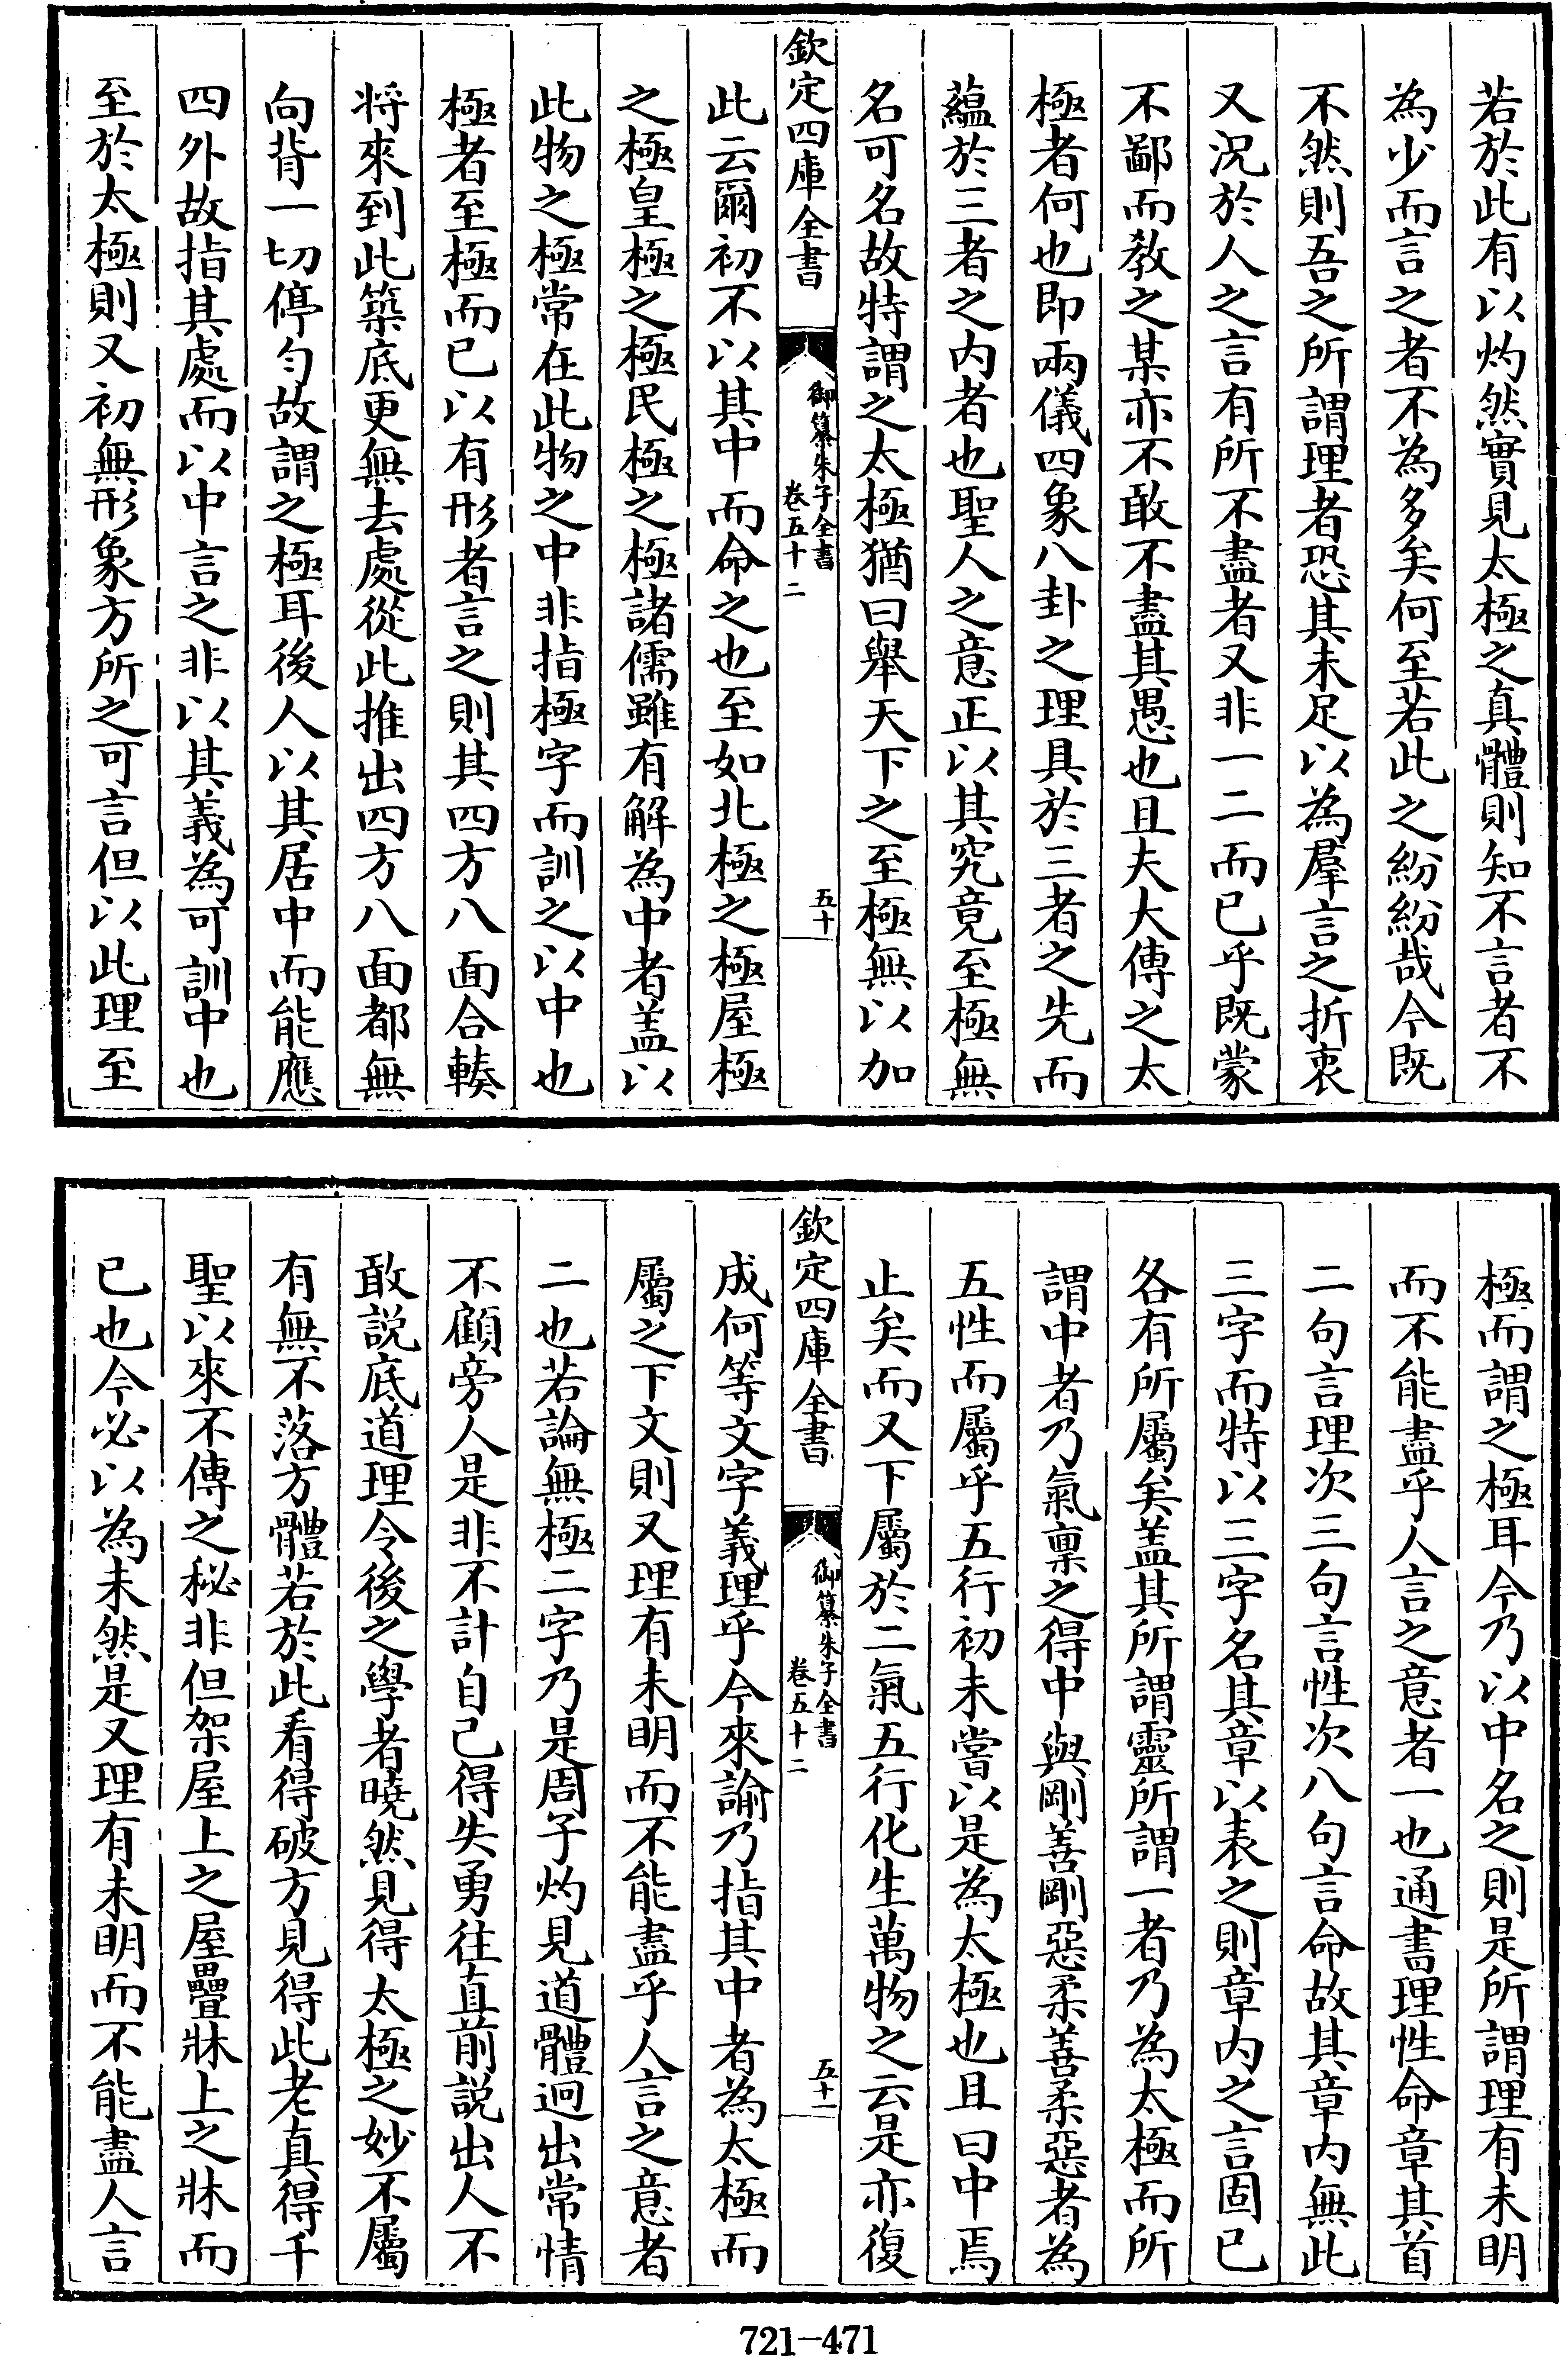 若於此有以灼然實見太極之真體則知不言者不
為少而言之者不為多矣何至若此之紛紛哉今既
不然則吾之所謂理者恐其未足以為羣言之折衷
又況於人之言有所不盡者又非一二而已乎既蒙
不鄙而教之某亦不敢不盡其愚也且夫大傳之太
極者何也即兩儀四象八卦之理具於三者之先而
蘊於三者之内者也聖人之意正以其究竟至極無
名可名故特謂之太極猶曰舉天下之至極無以加
欽定四庫全書
御纂朱子全書
卷五十二
五十
此云爾初不以其中而命之也至如北極之極屋極
之極皇極之極民極之極諸儒雖有解為中者盖以
此物之極常在此物之中非指極字而訓之以中也
極者至極而已以有形者言之則其四方八面合輳
将來到此築底更無去處從此推出四方八面都無
向背一切停勻故謂之極耳後人以其居中而能應
四外故指其處而以中言之非以其義為可訓中也
至於太極則又初無形象方所之可言但以此理至
極而謂之極耳今乃以中名之則是所謂理有未明
而不能盡乎人言之意者一也通書理性命章其首
二句言理次三句言性次八句言命故其章内無此
三字而特以三字名其章以表之則章内之言固已
各有所屬矣盖其所謂靈所謂一者乃為太極而所
謂中者乃氣稟之得中與剛善剛惡柔善柔惡者為
五性而屬乎五行初未嘗以是為太極也且曰中焉
止矣而又下屬於二氣五行化生萬物之云是亦復
欽定四庫全書
御纂朱子全書
卷五十二
五十一
成何等文字義理乎今來諭乃指其中者為太極而
屬之下文則又理有未明而不能盡乎人言之意者
二也若論無極二字乃是周子灼見道體迥出常情
不顧旁人是非不計自己得失勇往直前説出人不
敢説底道理令後之學者曉然見得太極之妙不屬
有無不落方體若於此看得破方見得此老真得千
聖以來不傳之秘非但架屋上之屋疊牀上之牀而
已也今必以為未然是又理有未明而不能盡人言
721-471